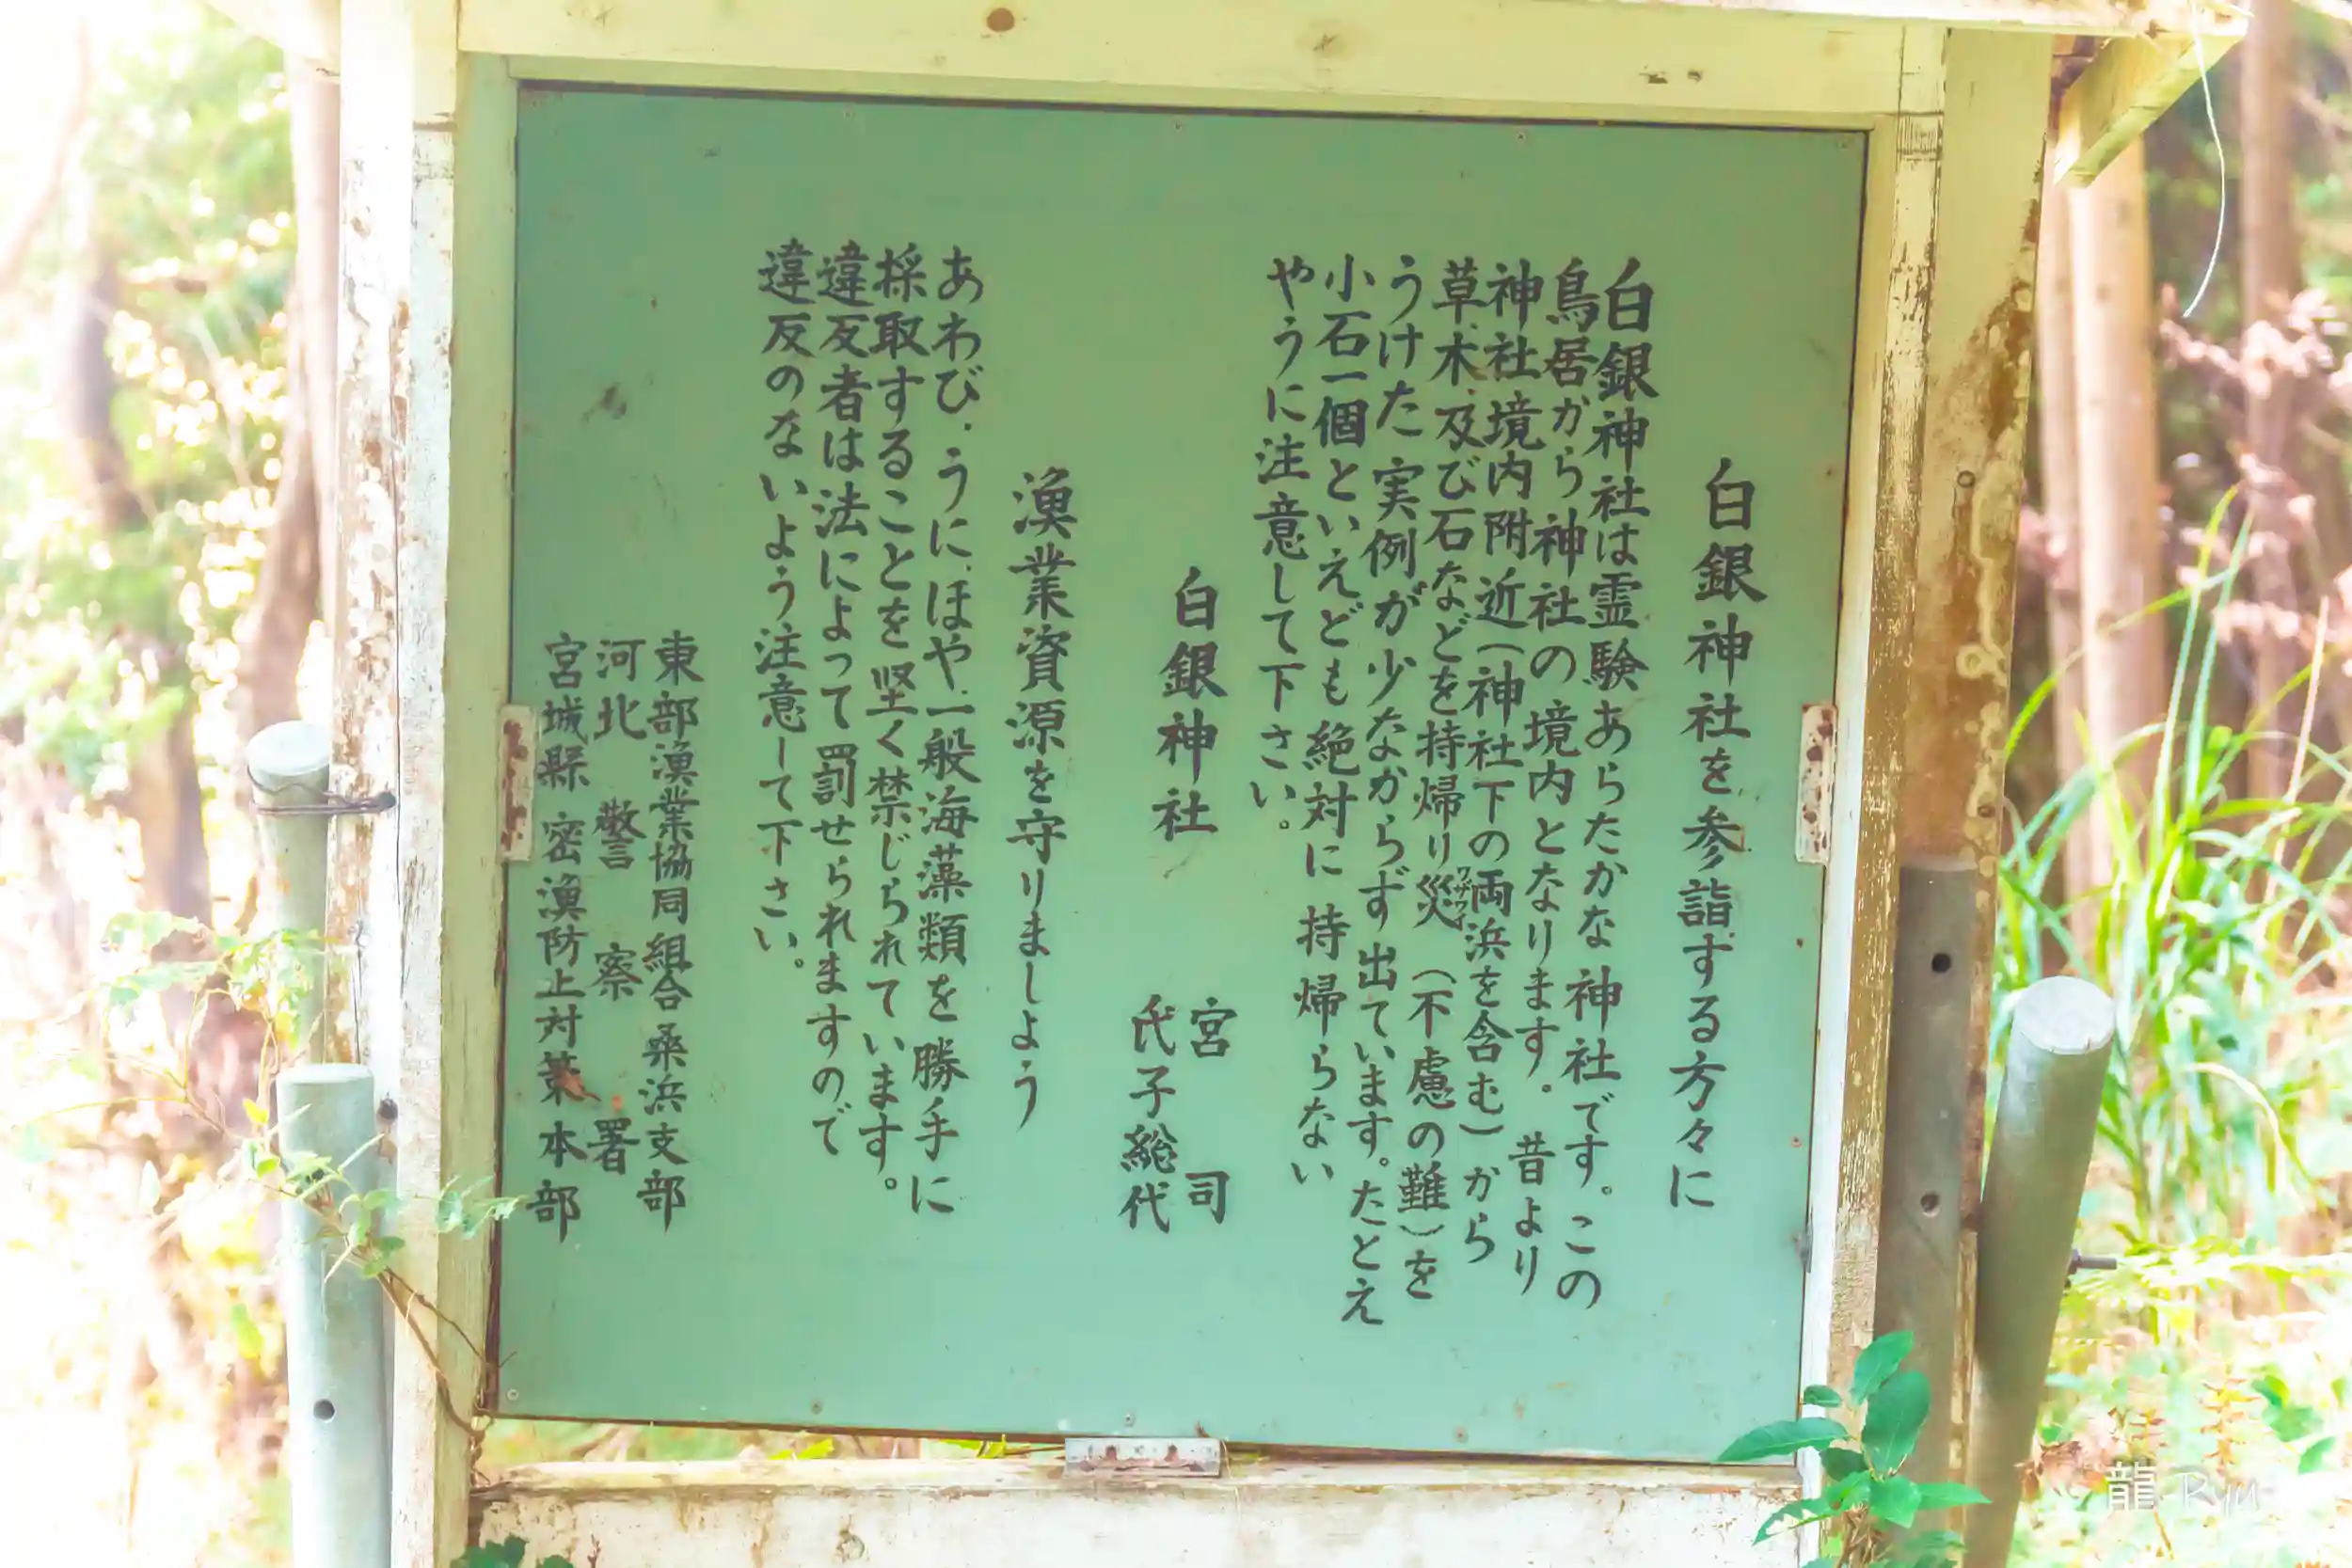 白銀神社を参詣する方々に
白銀神社は霊験あらたかな神社です。この
鳥居から神社の境内となります。昔より
神社境内附近(神社下の両浜を含む)から
草木及び石などを持帰り災(不慮の難)を
ワザワイ
うけた実例が少なからず出ています。たとえ
小石一個といえども絶対に持帰らない
やうに注意して下さい。
白銀神社
宮司
氏子総代
漁業資源を守りましよう
あわび.うに.ほや.一般海藻類を勝手に
採取することを堅く禁じられています。
違反者は法によって罰せられますので
違反のないよう注意して下さい。
東部漁業協同組合桑浜支部
河北警察署
宮城縣密漁防止対策本部
龍 Ryu